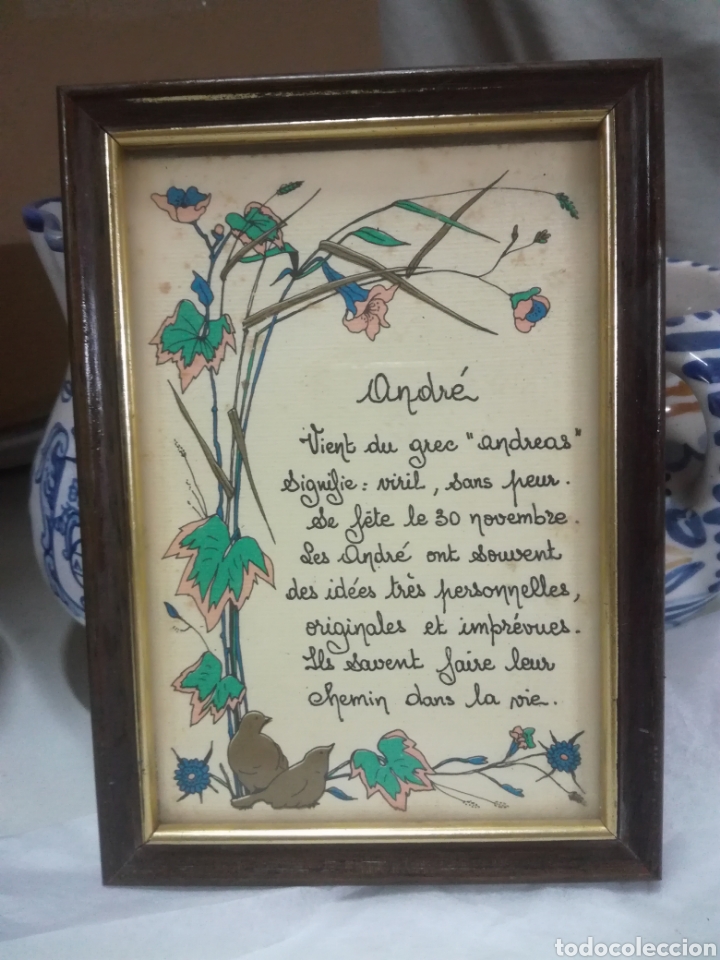 André
Vient du grec "andreas"
Signifie : viril, sans peur.
Se fête le 30 novembre.
Les André ont souvent
des idées très personnelles,
originales et imprévues.
Ils savent faire leur
chemin dans la vie.
todocoleccion